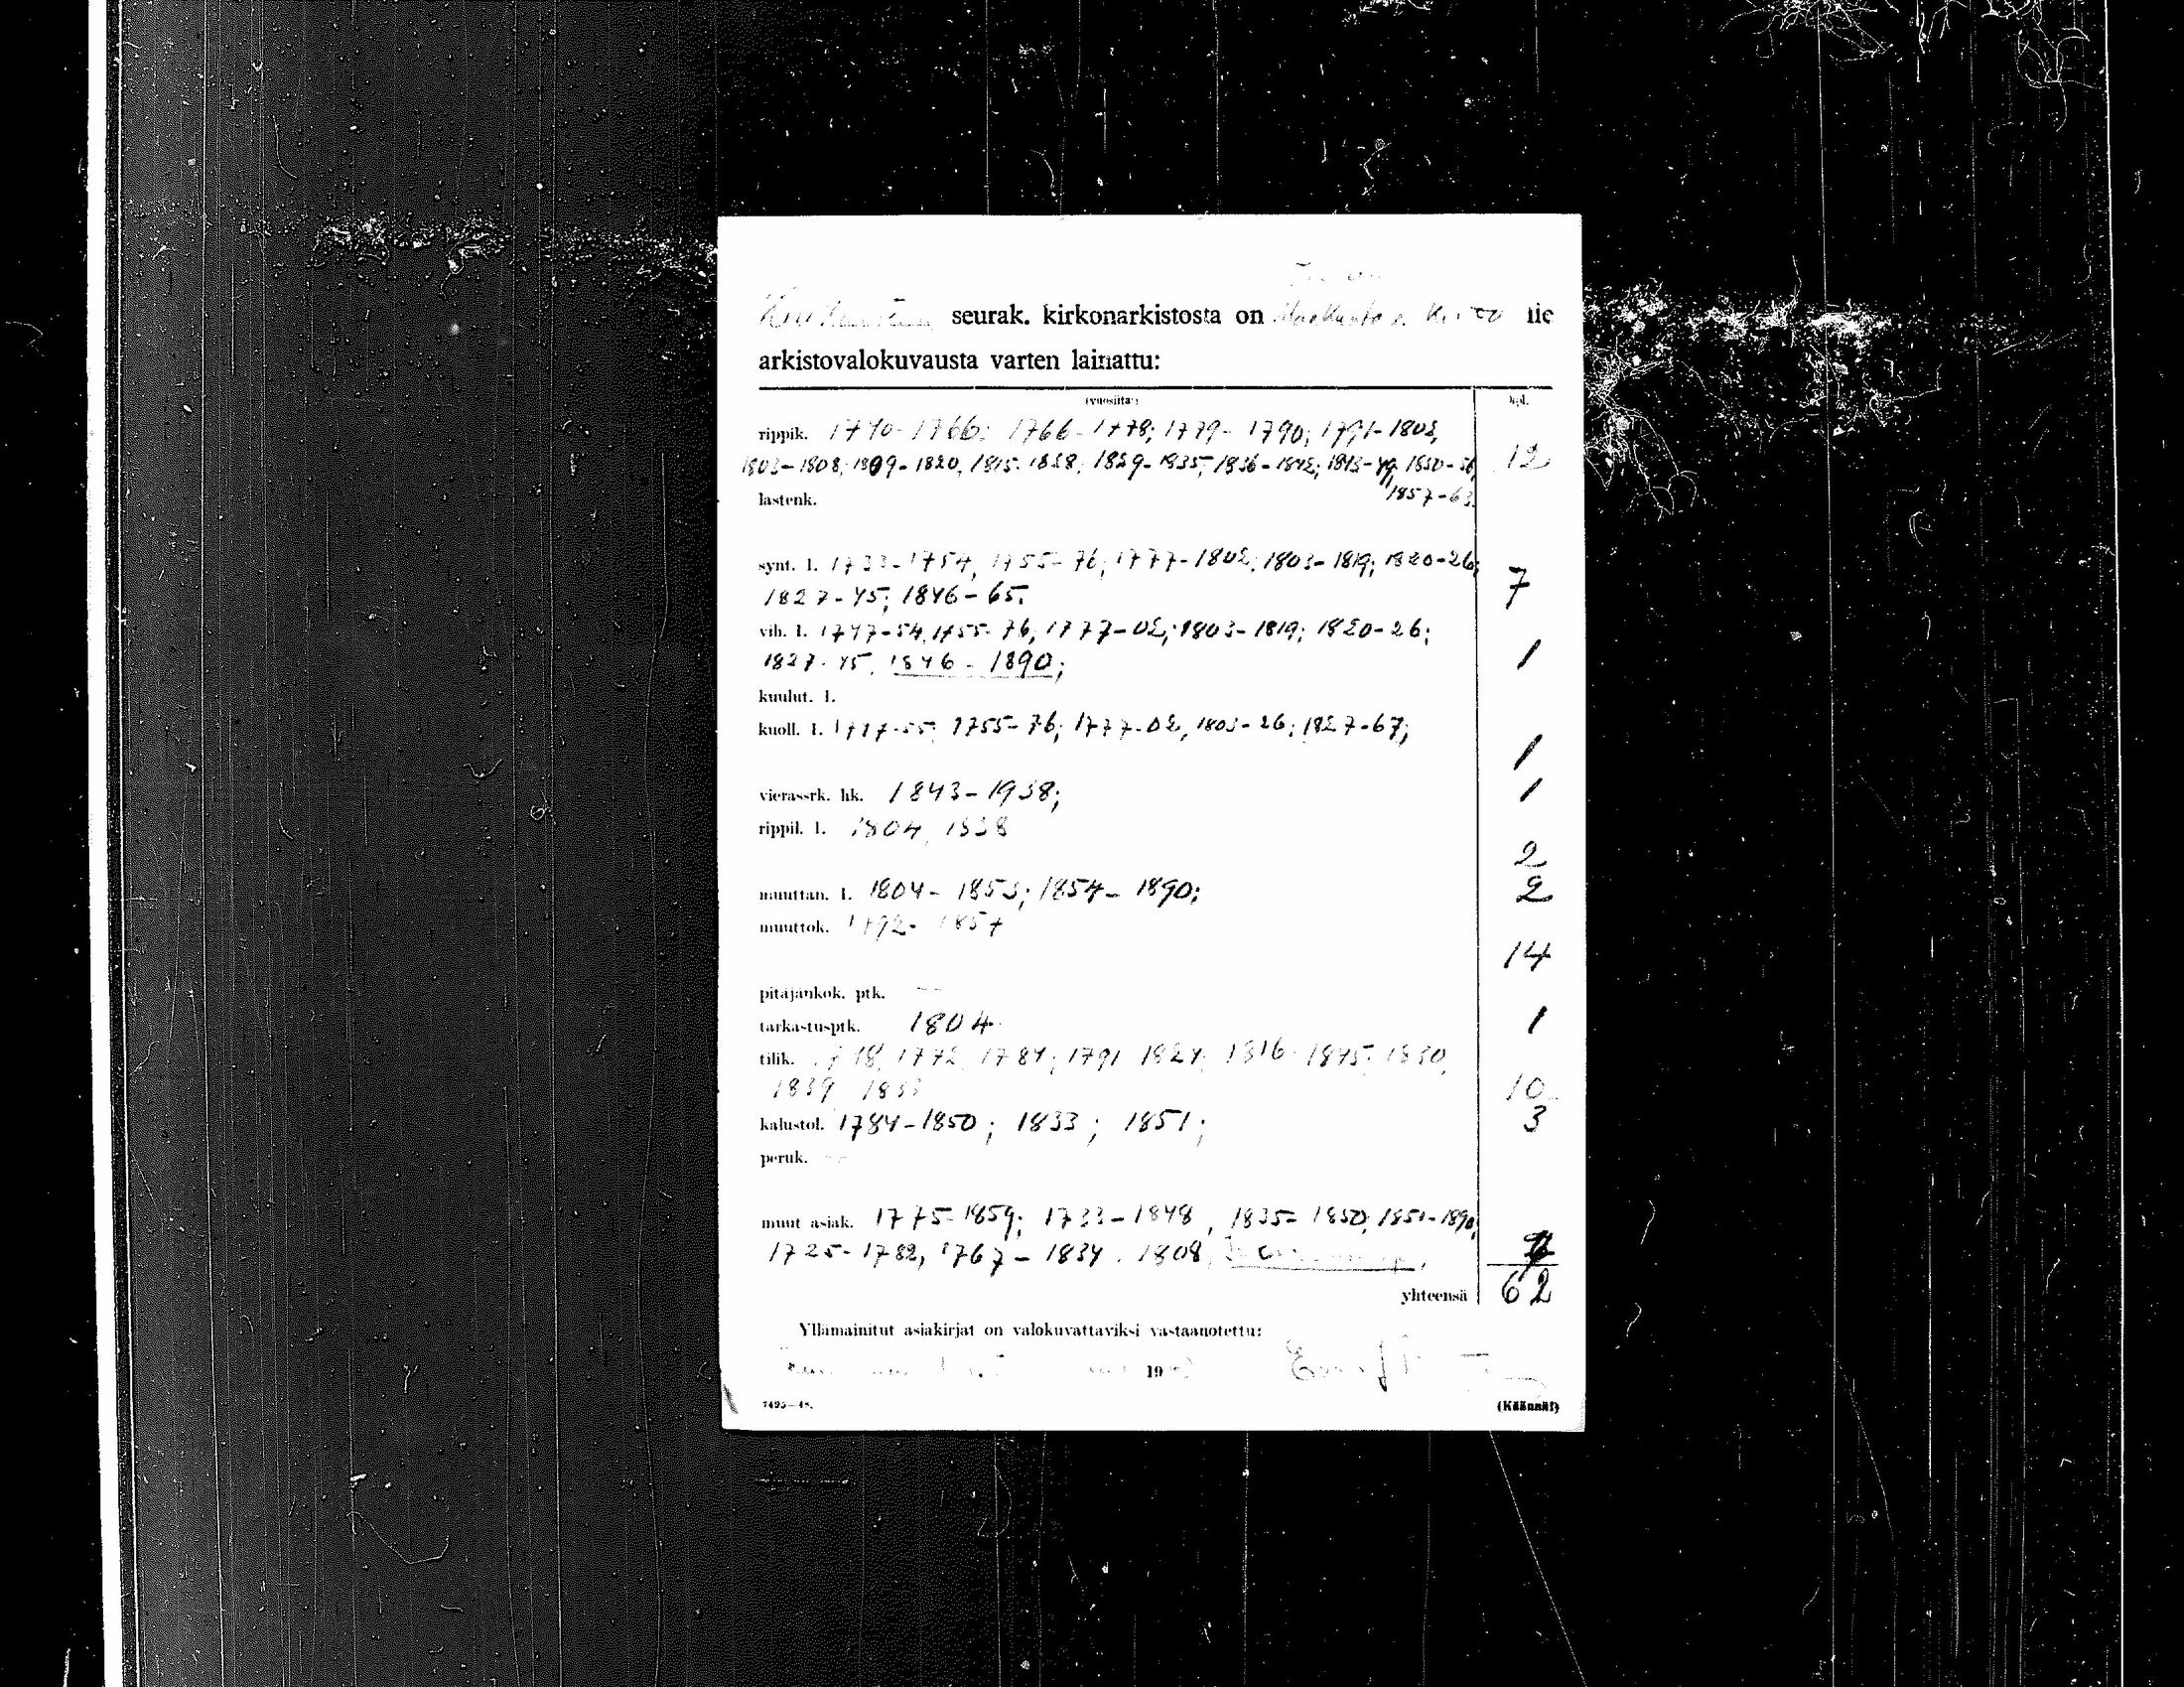 seurak. kirkonarkistosta on
arkistovalokuvausta varten lainattu:
(vuosilta:) kpl.
rippik. 1740-1766; 1766-1778; 1779-1790; 1791-1802,
1803-1808; 1809-1820, 1815-1828; 1829-1835; 1836-1842; 1843-49, 1850-56, 12
1857-63.
lastenk.
synt. l. 1733-1754, 1755-76; 1777-1802; 1803-1819; 1820-26;
1827-45; 1846-65. 7
vih. l. 1747-54, 1755-76, 1777-02; 1803-1819; 1820-26;
1827-45, 1846-1890; 1
kuulut. l.
kuoll. l. 1755-76; 1777-02, 1803-26; 1827-67;
1
vierassrk. hk. 1843-1938; 1
rippil. l. 1804, 1838
2
muuttan. l. 1804-1853; 1854-1890; 2
muuttok. 1792-1857
14
pitäjänkok. ptk. —
tarkastusptk. 1804 1
tilik. 1772, 1784; 1791 1824, 1816-1845; 1830,
1839 10
kalustol. 1784-1850; 1833; 1851; 3
peruk. —
muut asiak. 1775-1859; 1733-1848, 1835-1850, 1851-1890;
1725-1782, 1767-1834, 1808,
yhteensä 62
Yllämainitut asiakirjat on valokuvattaviksi vastaanotettu:
19
7495—48. (Käännä!)